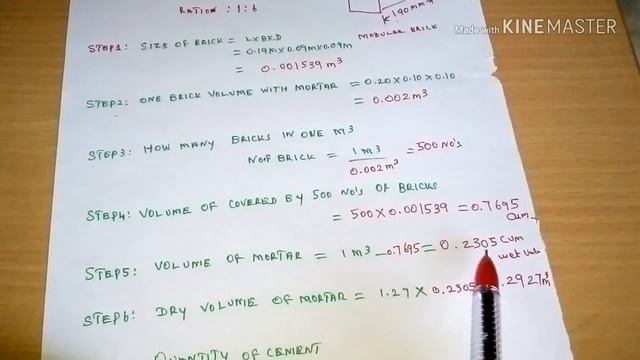 RATION : 1:6
190mm
Made with KINEMASTER
MODULAR BRICK
STEP1: SIZE OF BRICK = LXBXD
= 0.19M X 0.09M X 0.09M
= 0.001539 M³
STEP2: ONE BRICK VOLUME WITH MORTAR = 0.20 X 0.10 X 0.10
= 0.002 M³
STEP3: HOW MANY BRICKS IN ONE M³
NO OF BRICK = 1 M³ / 0.002 M³ = 500 NO'S
STEP4: VOLUME OF COVERED BY 500 NO'S OF BRICKS
= 500 X 0.001539 = 0.7695
Cum
STEP5: VOLUME OF MORTAR = 1 M³ - 0.7695 = 0.2305 cum
wet
STEP6: DRY VOLUME OF MORTAR = 1.27 X 0.2305 .2927 m³
QUANTITY OF CEMENT